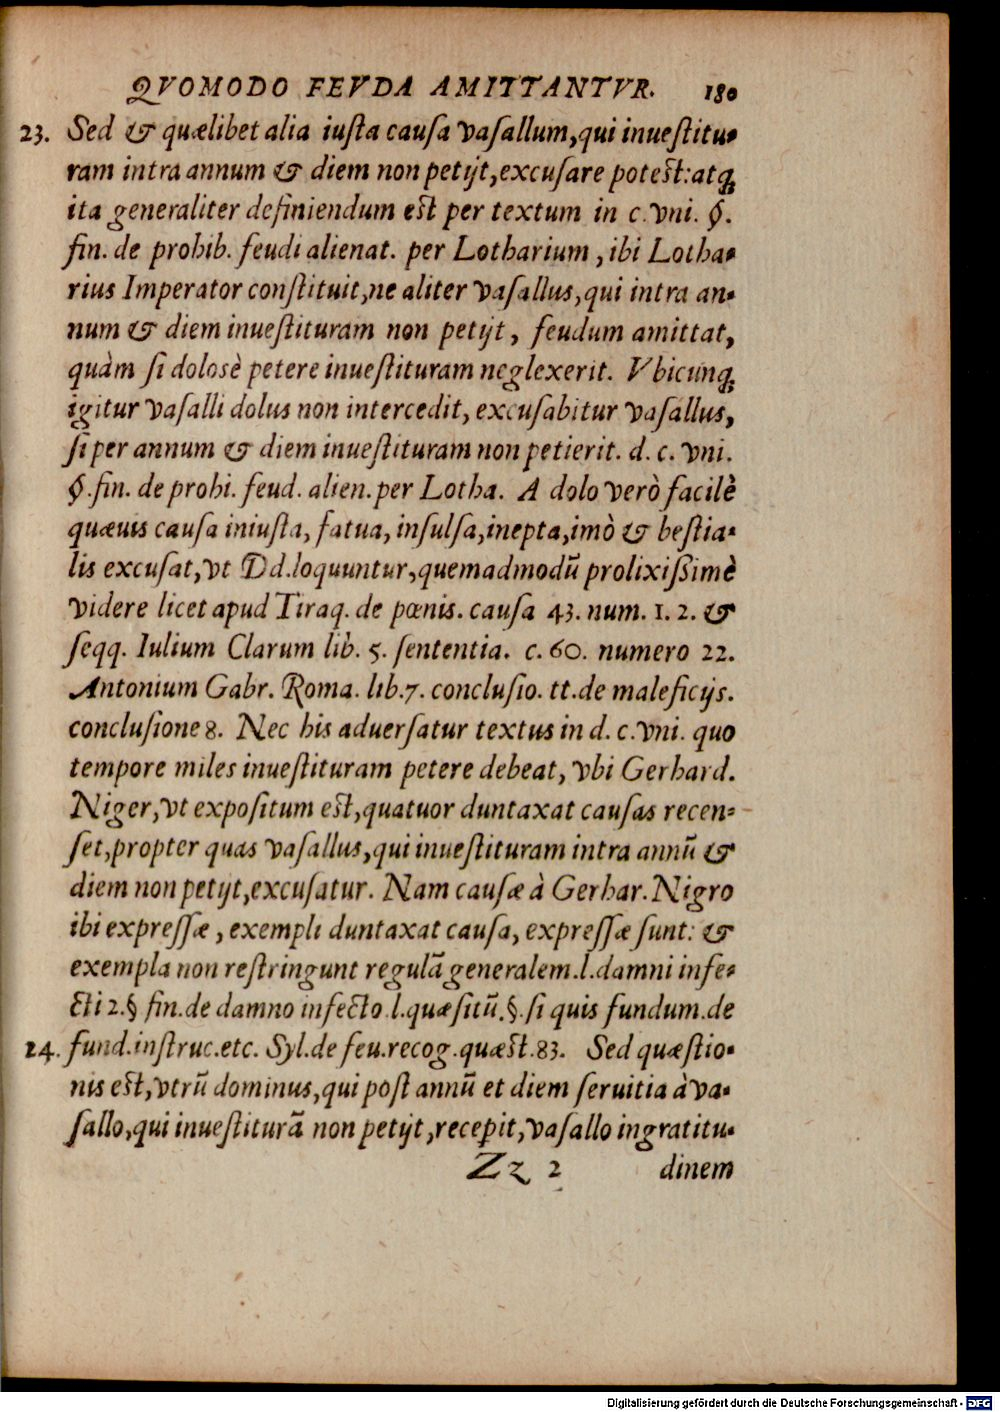 QVOMODO FEVDA AMITTANTVR. 180
23. Sed & quælibet alia iusta causa vasallum, qui inuestitu-
ram intra annum & diem non petijt, excusare potest: atq;
ita generaliter definiendum est per textum in c. vni. §.
fin. de prohib. feudi alienat. per Lotharium, ibi Lotha-
rius Imperator constituit, ne aliter vasallus, qui intra an-
num & diem inuestituram non petijt, feudum amittat,
quàm si dolosè petere inuestituram neglexerit. Vbicunq;
igitur vasalli dolus non intercedit, excusabitur vasallus,
si per annum & diem inuestituram non petierit. d. c. vni.
§. fin. de prohi. feud. alien. per Lotha. A dolo verò facilè
quæuis causa iniusta, fatua, insulsa, inepta, imò & bestia-
lis excusat, vt Dd. loquuntur, quemadmodū prolixissimè
videre licet apud Tiraq. de pœnis. causa 43. num. 1. 2. &
seqq. Iulium Clarum lib. 5. sententia. c. 60. numero 22.
Antonium Gabr. Roma. lib. 7. conclusio. tt. de maleficijs.
conclusione 8. Nec his aduersatur textus in d. c. vni. quo
tempore miles inuestituram petere debeat, vbi Gerhard.
Niger, vt expositum est, quatuor duntaxat causas recen-
set, propter quas vasallus, qui inuestituram intra annū &
diem non petijt, excusatur. Nam causæ à Gerhar. Nigro
ibi expressæ, exempli duntaxat causa, expressæ sunt: &
exempla non restringunt regulā generalem. l. damni infe-
cti 2. § fin. de damno infecto. l. quæsitū. §. si quis fundum. de
24. fund. instruc. etc. Syl. de feu. recog. quæst. 83. Sed quæstio-
nis est, vtrū dominus, qui post annū et diem seruitia à va-
sallo, qui inuestiturā non petijt, recepit, vasallo ingratitu-
Zz 2 dinem
Digitalisierung gefördert durch die Deutsche Forschungsgemeinschaft - DFG